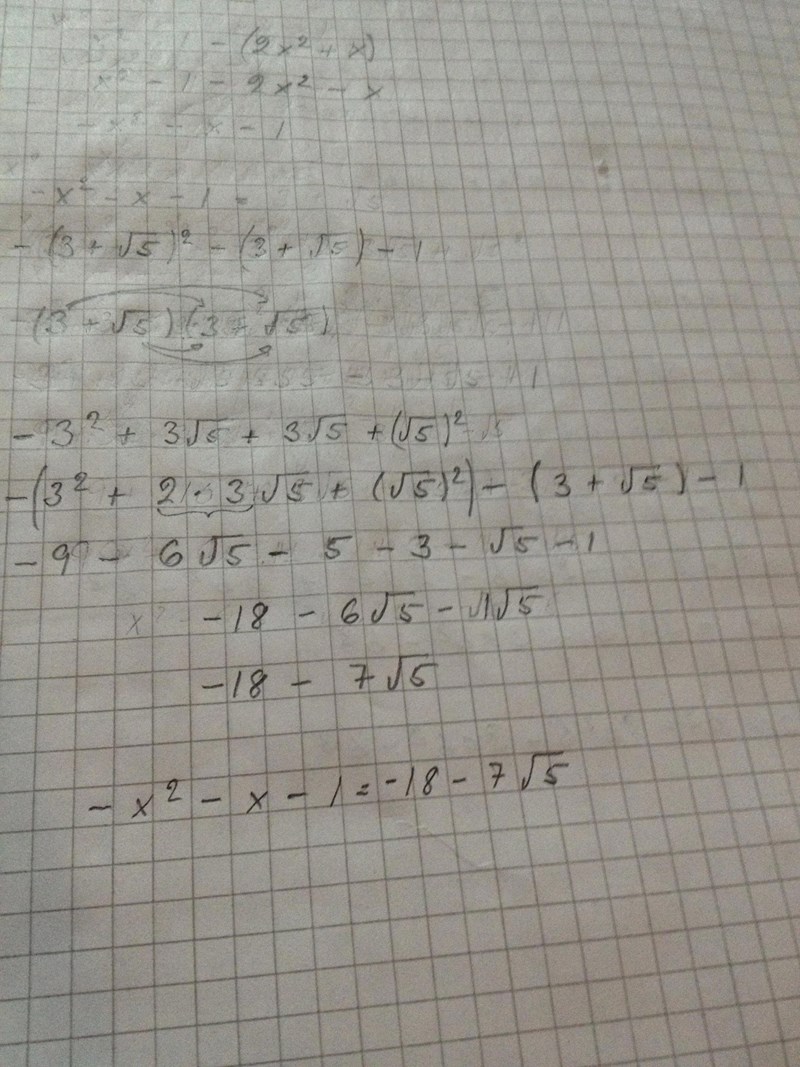 1 - (2x² + x)
x² - 1 - 2x² - x
- x² - x - 1
- x² - x - 1 =
- (3 + √5)² - (3 + √5) - 1
-(3 + √5)(3 + √5)
- 3² + 3√5 + 3√5 + (√5)²
-(3² + 2 · 3√5 + (√5)²) - (3 + √5) - 1
- 9 - 6√5 - 5 - 3 - √5 - 1
-18 - 6√5 - 1√5
-18 - 7√5
- x² - x - 1 = -18 - 7√5